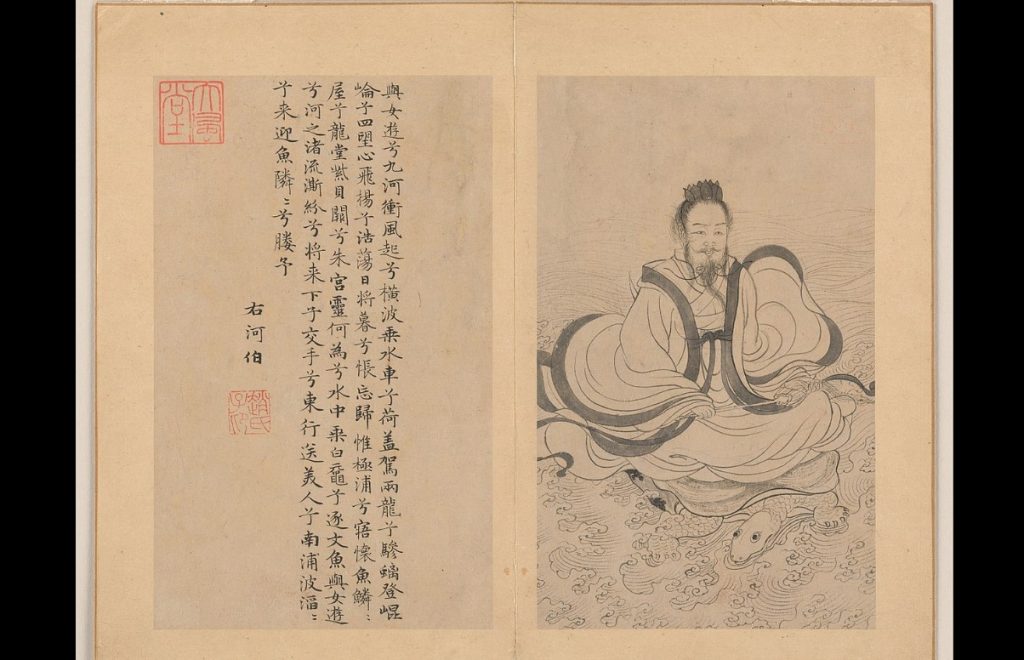 與女遊兮九河衝風起兮橫波乗水車兮荷盖駕兩龍兮驂螭登崐
崘兮四望心飛揚兮浩蕩日将暮兮悵忘歸惟極浦兮寤懷魚鱗〻
屋兮龍堂紫貝闕兮朱宫靈何為兮水中乗白黿兮逐文魚與女遊
兮河之渚流澌紛兮将来下子交手兮東行送美人兮南浦波滔〻
兮来迎魚隣〻兮媵予
右河伯
大雅堂
趙氏子昂